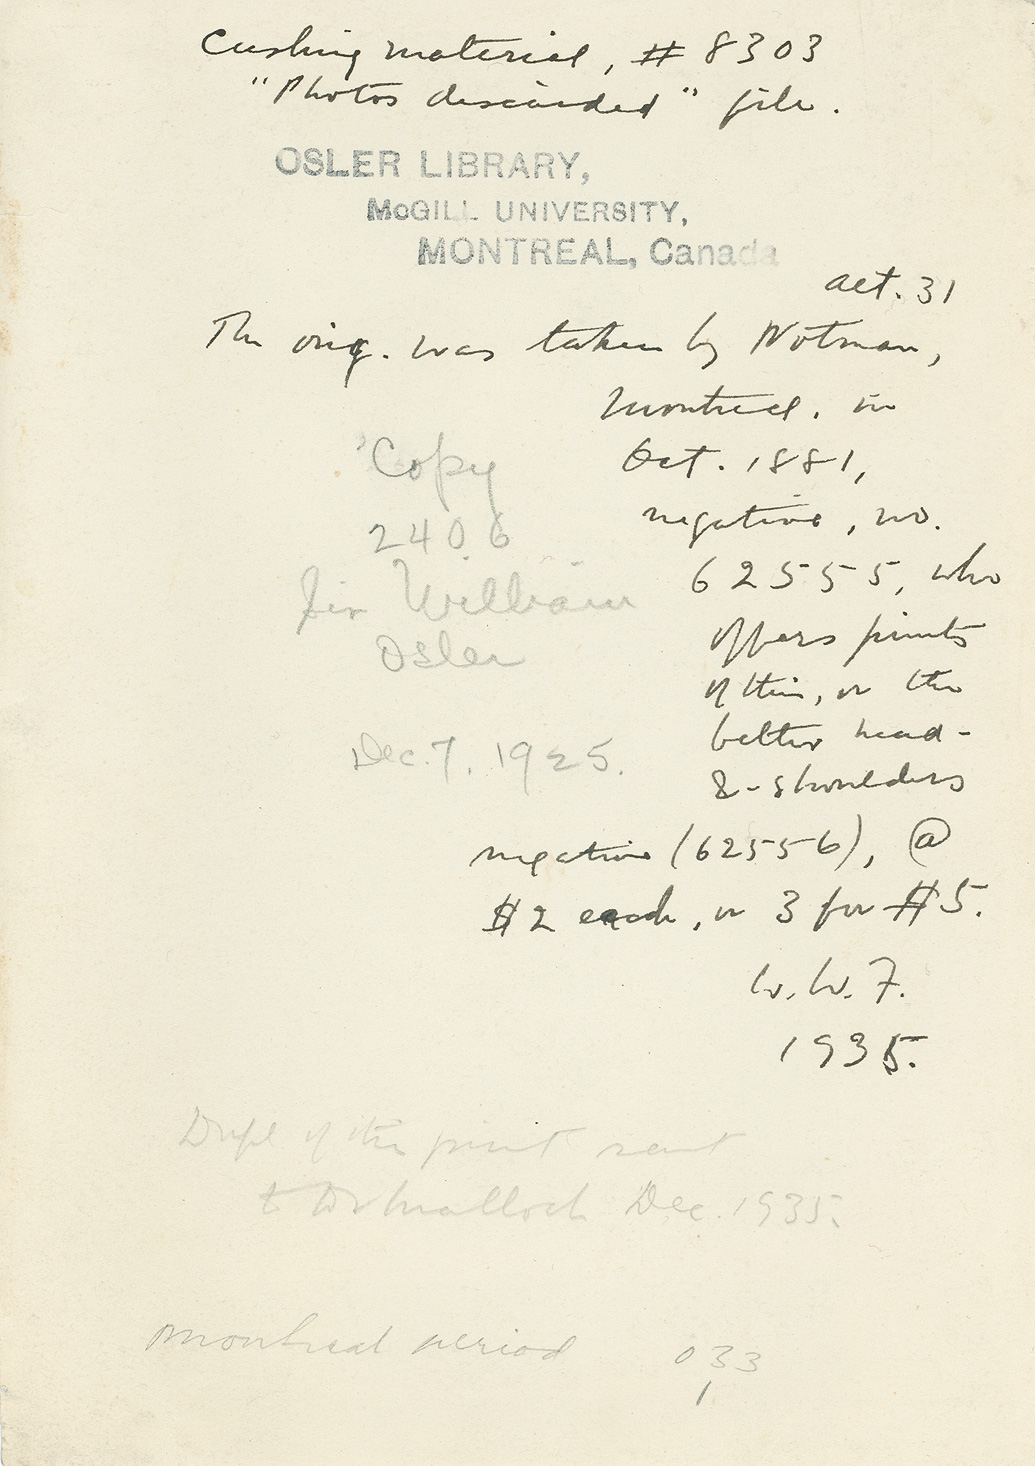 Cushing material, # 8303
"Photos discarded" file.
OSLER LIBRARY,
McGILL UNIVERSITY,
MONTREAL, Canada
aet. 31
The orig. was taken by Notman,
Montreal, in
Oct. 1881,
negative, no.
62555, who
offers prints
of this, or the
better head-
&-shoulders
negative (62556), @
$2 each, or 3 for $5.
W.W.F.
1935.
Copy
2406
Sir William
Osler
Dec. 7, 1925.
Dupl of this print sent
to Dr Malloch Dec. 1935.
Montreal period
033
1